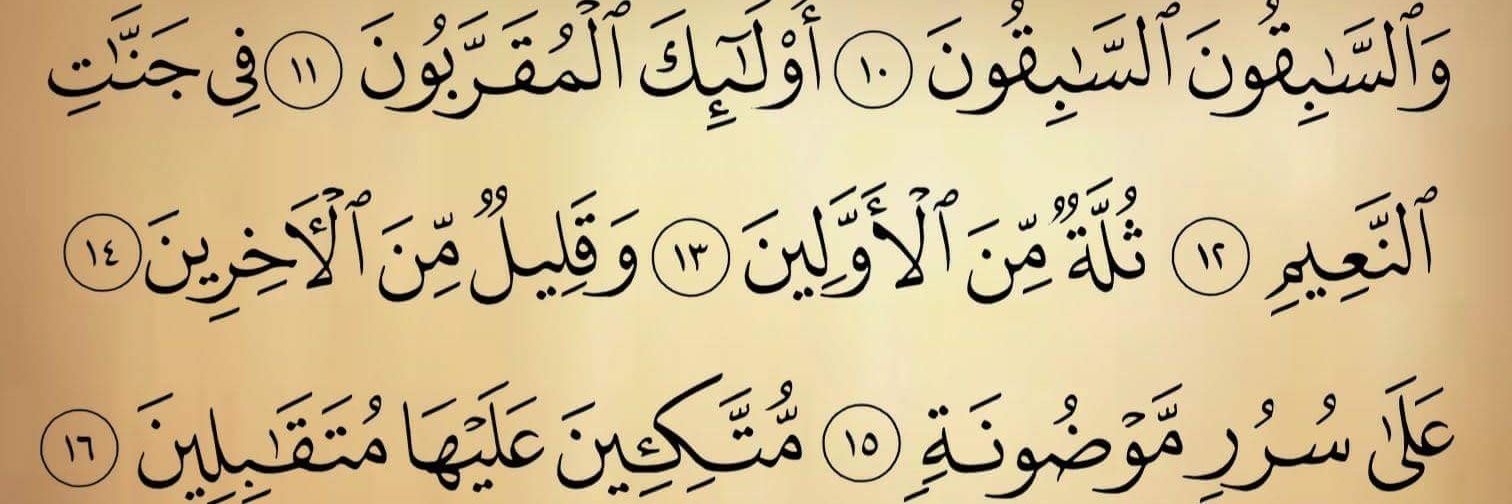 وَٱلسَّـٰبِقُونَ ٱلسَّـٰبِقُونَ ١٠ أُو۟لَـٰٓئِكَ ٱلْمُقَرَّبُونَ ١١ فِى جَنَّـٰتِ
ٱلنَّعِيمِ ١٢ ثُلَّةٌ مِّنَ ٱلْأَوَّلِينَ ١٣ وَقَلِيلٌ مِّنَ ٱلْـَٔاخِرِينَ ١٤
عَلَىٰ سُرُرٍ مَّوْضُونَةٍ ١٥ مُّتَّكِـِٔينَ عَلَيْهَا مُتَقَـٰبِلِينَ ١٦